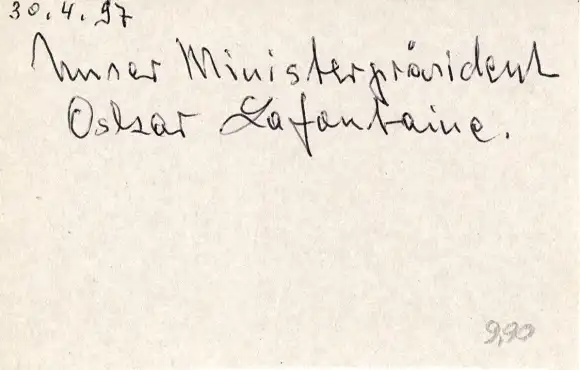 30.4.97
Unser Ministerpräsident
Oskar Lafontaine.
9,90